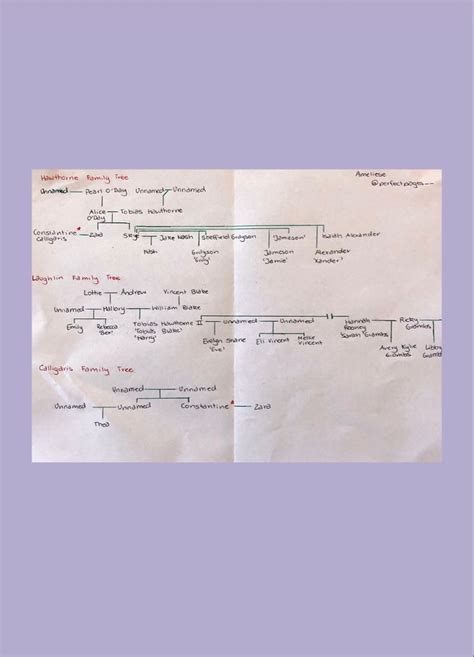 Hawthorne Family Tree
Ameliese
@perfectpages__
Unnamed Pearl O'Day Unnamed Unnamed
Alice O'Day Tobias Hawthorne
Constantine Calligaris Zara Skye Jake Nash Sheffield Grayson 'Jameson' Isaiah Alexander
Nash Grayson 'Gray' Jameson 'Jamie' Alexander 'Xander'
Laughlin Family Tree
Lottie Andrew Vincent Blake
Unnamed Mallory William Blake
Emily Rebecca 'Bex' Tobias Hawthorne II 'Tobias Blake' 'Harry' Unnamed Unnamed Hannah Rooney 'Sarah Grambs' Ricky Grambs
Evelyn Shane 'Eve' Eli Vincent Mellie Vincent Avery Kylie Grambs Libby Grambs
Calligaris Family Tree
Unnamed Unnamed
Unnamed Unnamed Constantine Zara
Thea